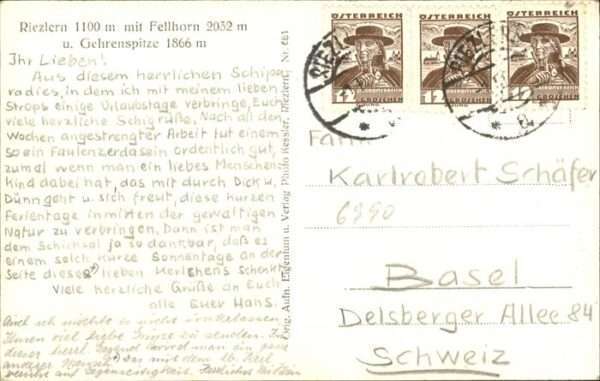 Riezlern 1100 m mit Fellhorn 2052 m
u. Gehrenspitze 1866 m
Ihr Lieben!
Aus diesem herrlichen Schipa
radies, in dem ich mit meinem lieben
Strops einige Urlaubstage verbringe, Euch
viele herzliche Schigrüße. Nach all den
Wochen angestrengter Arbeit tut einem
so ein Faulenzerdasein ordentlich gut,
zumal wenn man ein liebes Menschen-
kind dabei hat, das mit durch Dick u.
Dünn geht u. sich freut, diese kurzen
Ferientage inmitten der gewaltigen
Natur zu verbringen. Dann ist man
dem Schicksal ja so dankbar, daß es
einem solch kurze Sonnentage an der
Seite dieses lieben Kerlchens schenkt
Viele herzliche Grüße an Euch
alle Euer Hans.
Auch ich möchte es nicht
Ihnen viel liebe Grüsse zu senden. In
dieser man ein ganz
anderer Mensch das mit dem lb. Kerl
auf Gegenseitigkeit. Herzlichst
Orig. Aufn. Eigentum u. Verlag Photo Kessler, Riezlern. Nr. 661
ÖSTERREICH
12 GROSCHEN
ÖSTERREICH
12 GROSCHEN
ÖSTERREICH
12 GROSCHEN
RIEZL
RIEZL
Fam.
Karlrobert Schäfer
6990
Basel
Delsberger Allee 84
Schweiz